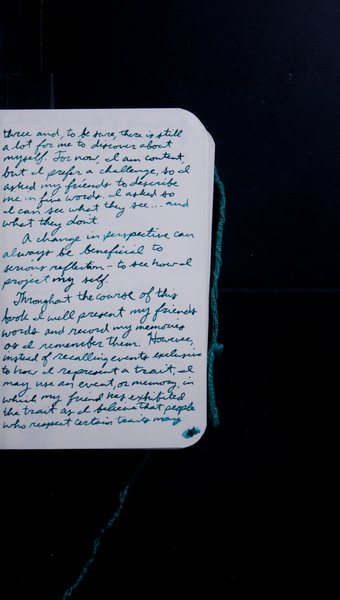 three and, to be sure, there is still
a lot for me to discover about
myself. For now, I am content,
but I prefer a challenge, so I
asked my friends to describe
me in five words. I asked so
I can see what they see... and
what they don't.
A change in perspective can
always be beneficial to
serious reflection - to see how I
project my self.
Throughout the course of this
book I will present my friends
words and record my memories
as I remember them. However,
instead of recalling events exclusive
to how I represent a trait, I
may use an event, or memory, in
which my friend has exhibited
the trait as I believe that people
who respect certain traits may